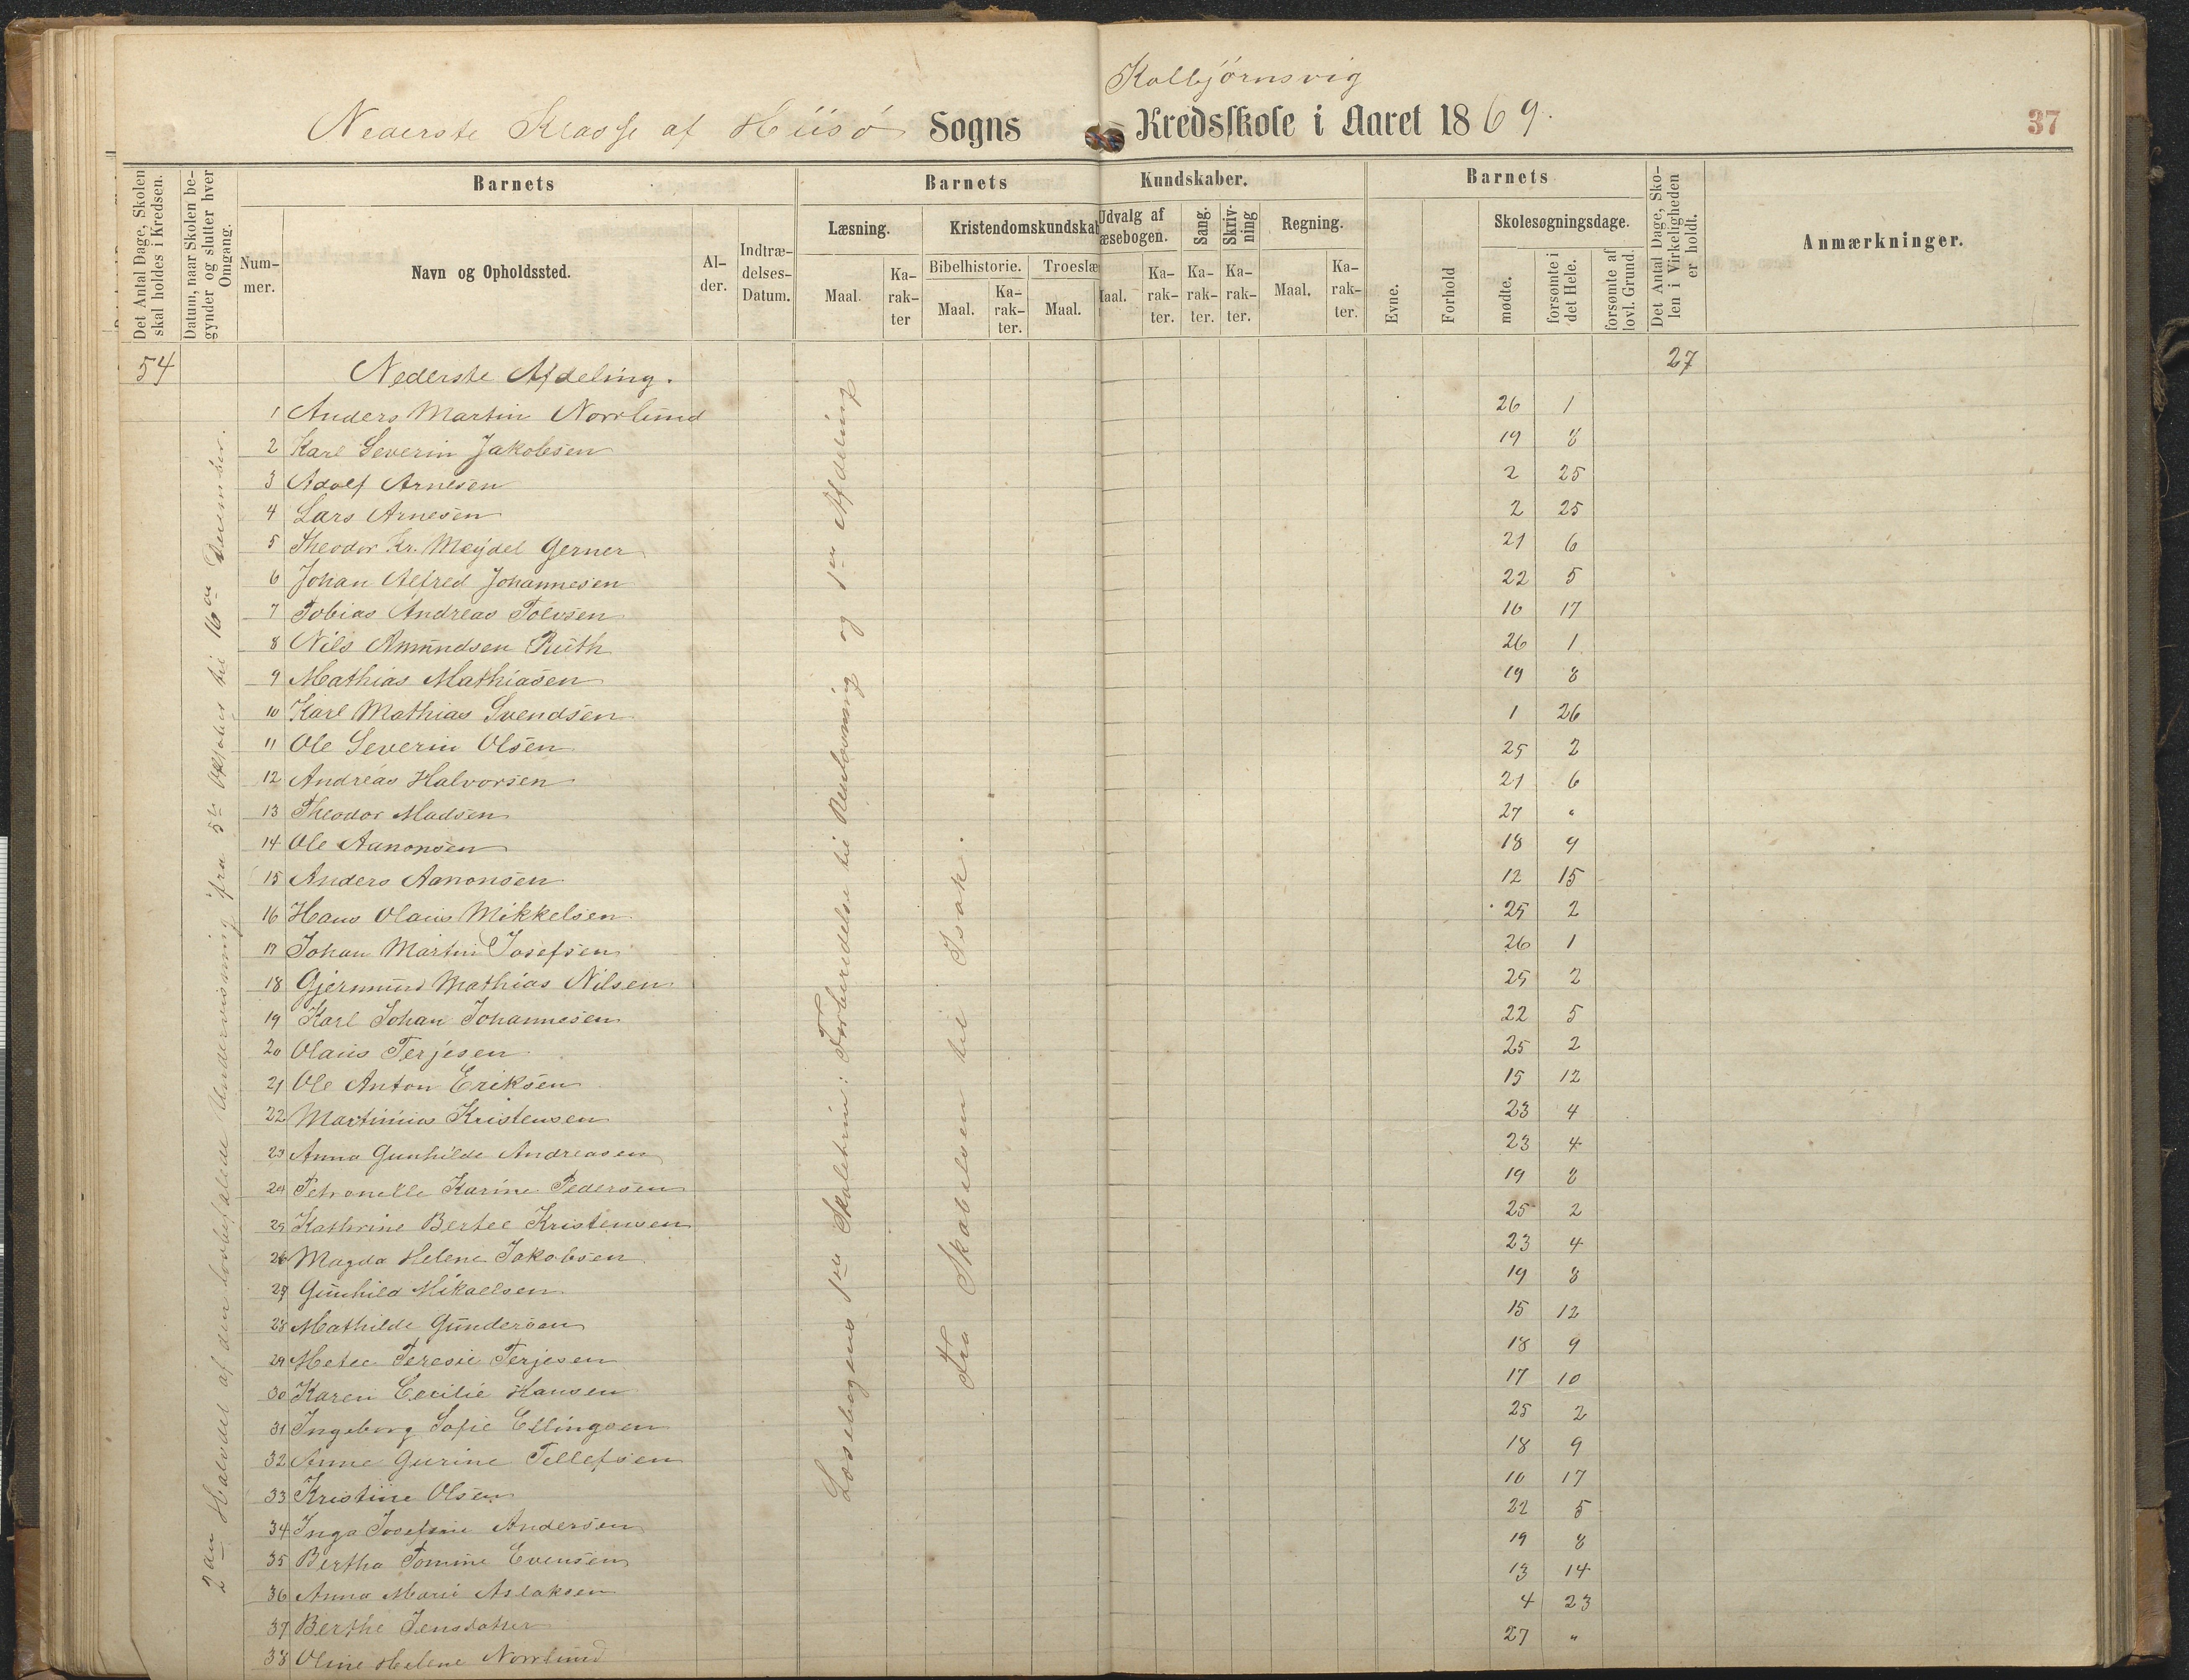 Kolbjørnsvig
Nederste Klasse af Hiisø Sogns Kredsskole i Aaret 1869.
37
Det Antal Dage, Skolen skal holdes i Kredsen.
Datum, naar Skolen begynder og slutter hver Omgang.
Barnets
Nummer.
Navn og Opholdssted.
Alder.
Indtrædelses-Datum.
Barnets Kundskaber.
Læsning.
Maal.
Karakter
Kristendomskundskab
Bibelhistorie.
Maal.
Karakter.
Troeslæ
Maal.
Udvalg af
æsebogen.
Maal.
Karakter.
Sang.
Karakter.
Skrivning
Karakter.
Regning.
Maal.
Karakter.
Barnets
Evne.
Forhold
Skolesøgningsdage.
mødte.
forsømte i det Hele.
forsømte af lovl. Grund.
Det Antal Dage, Skolen i Virkeligheden er holdt.
Anmærkninger.
54 Nederste Afdeling. 27
2den Halvdel af den lovbefalede Undervisning fra 5te Oktober til 16de December.
Læsebogens 1ste Skoletrin: Forberedelse til Renlæsning og 1ste Afdeling
Fra Skabelsen til Isak.
1 Anders Martin Norrlund 26 1
2 Karl Severin Jakobsen 19 8
3 Adolf Arnesen 2 25
4 Lars Arnesen 2 25
5 Theodor Kr. Meydel Gerner 21 6
6 Johan Alfred Johannesen 22 5
7 Tobias Andreas Tolvsen 10 17
8 Nils Amundsen Ruth 26 1
9 Mathias Mathiasen 19 8
10 Karl Mathias Svendsen 1 26
11 Ole Severin Olsen 25 2
12 Andreas Halvorsen 21 6
13 Theodor Madsen 27 "
14 Ole Aanonsen 18 9
15 Anders Aanonsen 12 15
16 Hans Olaus Mikkelsen 25 2
17 Johan Martin Josefsen 26 1
18 Gjermund Mathias Nilsen 25 2
19 Karl Johan Johannesen 22 5
20 Olaus Terjesen 25 2
21 Ole Anton Eriksen 15 12
22 Martinius Kristensen 23 4
23 Anna Gunhilde Andreasen 23 4
24 Petronelle Karine Pedersen 19 8
25 Kathrine Bertee Kristensen 25 2
26 Magda Helene Jakobsen 23 4
27 Gunhild Mikaelsen 19 8
28 Mathilde Gundersen 15 12
29 Metee Teresie Terjesen 18 9
30 Karen Cecilie Hansen 17 10
31 Ingeborg Sofie Ellingsen 25 2
32 Anne Gurine Tellefsen 18 9
33 Kristine Olsen 10 17
34 Inga Josefine Andersen 22 5
35 Bertha Tomine Evensen 19 8
36 Anna Marie Aslaksen 13 14
37 Berthe Jensdatter 4 23
38 Oline Helene Norrlund 27 "